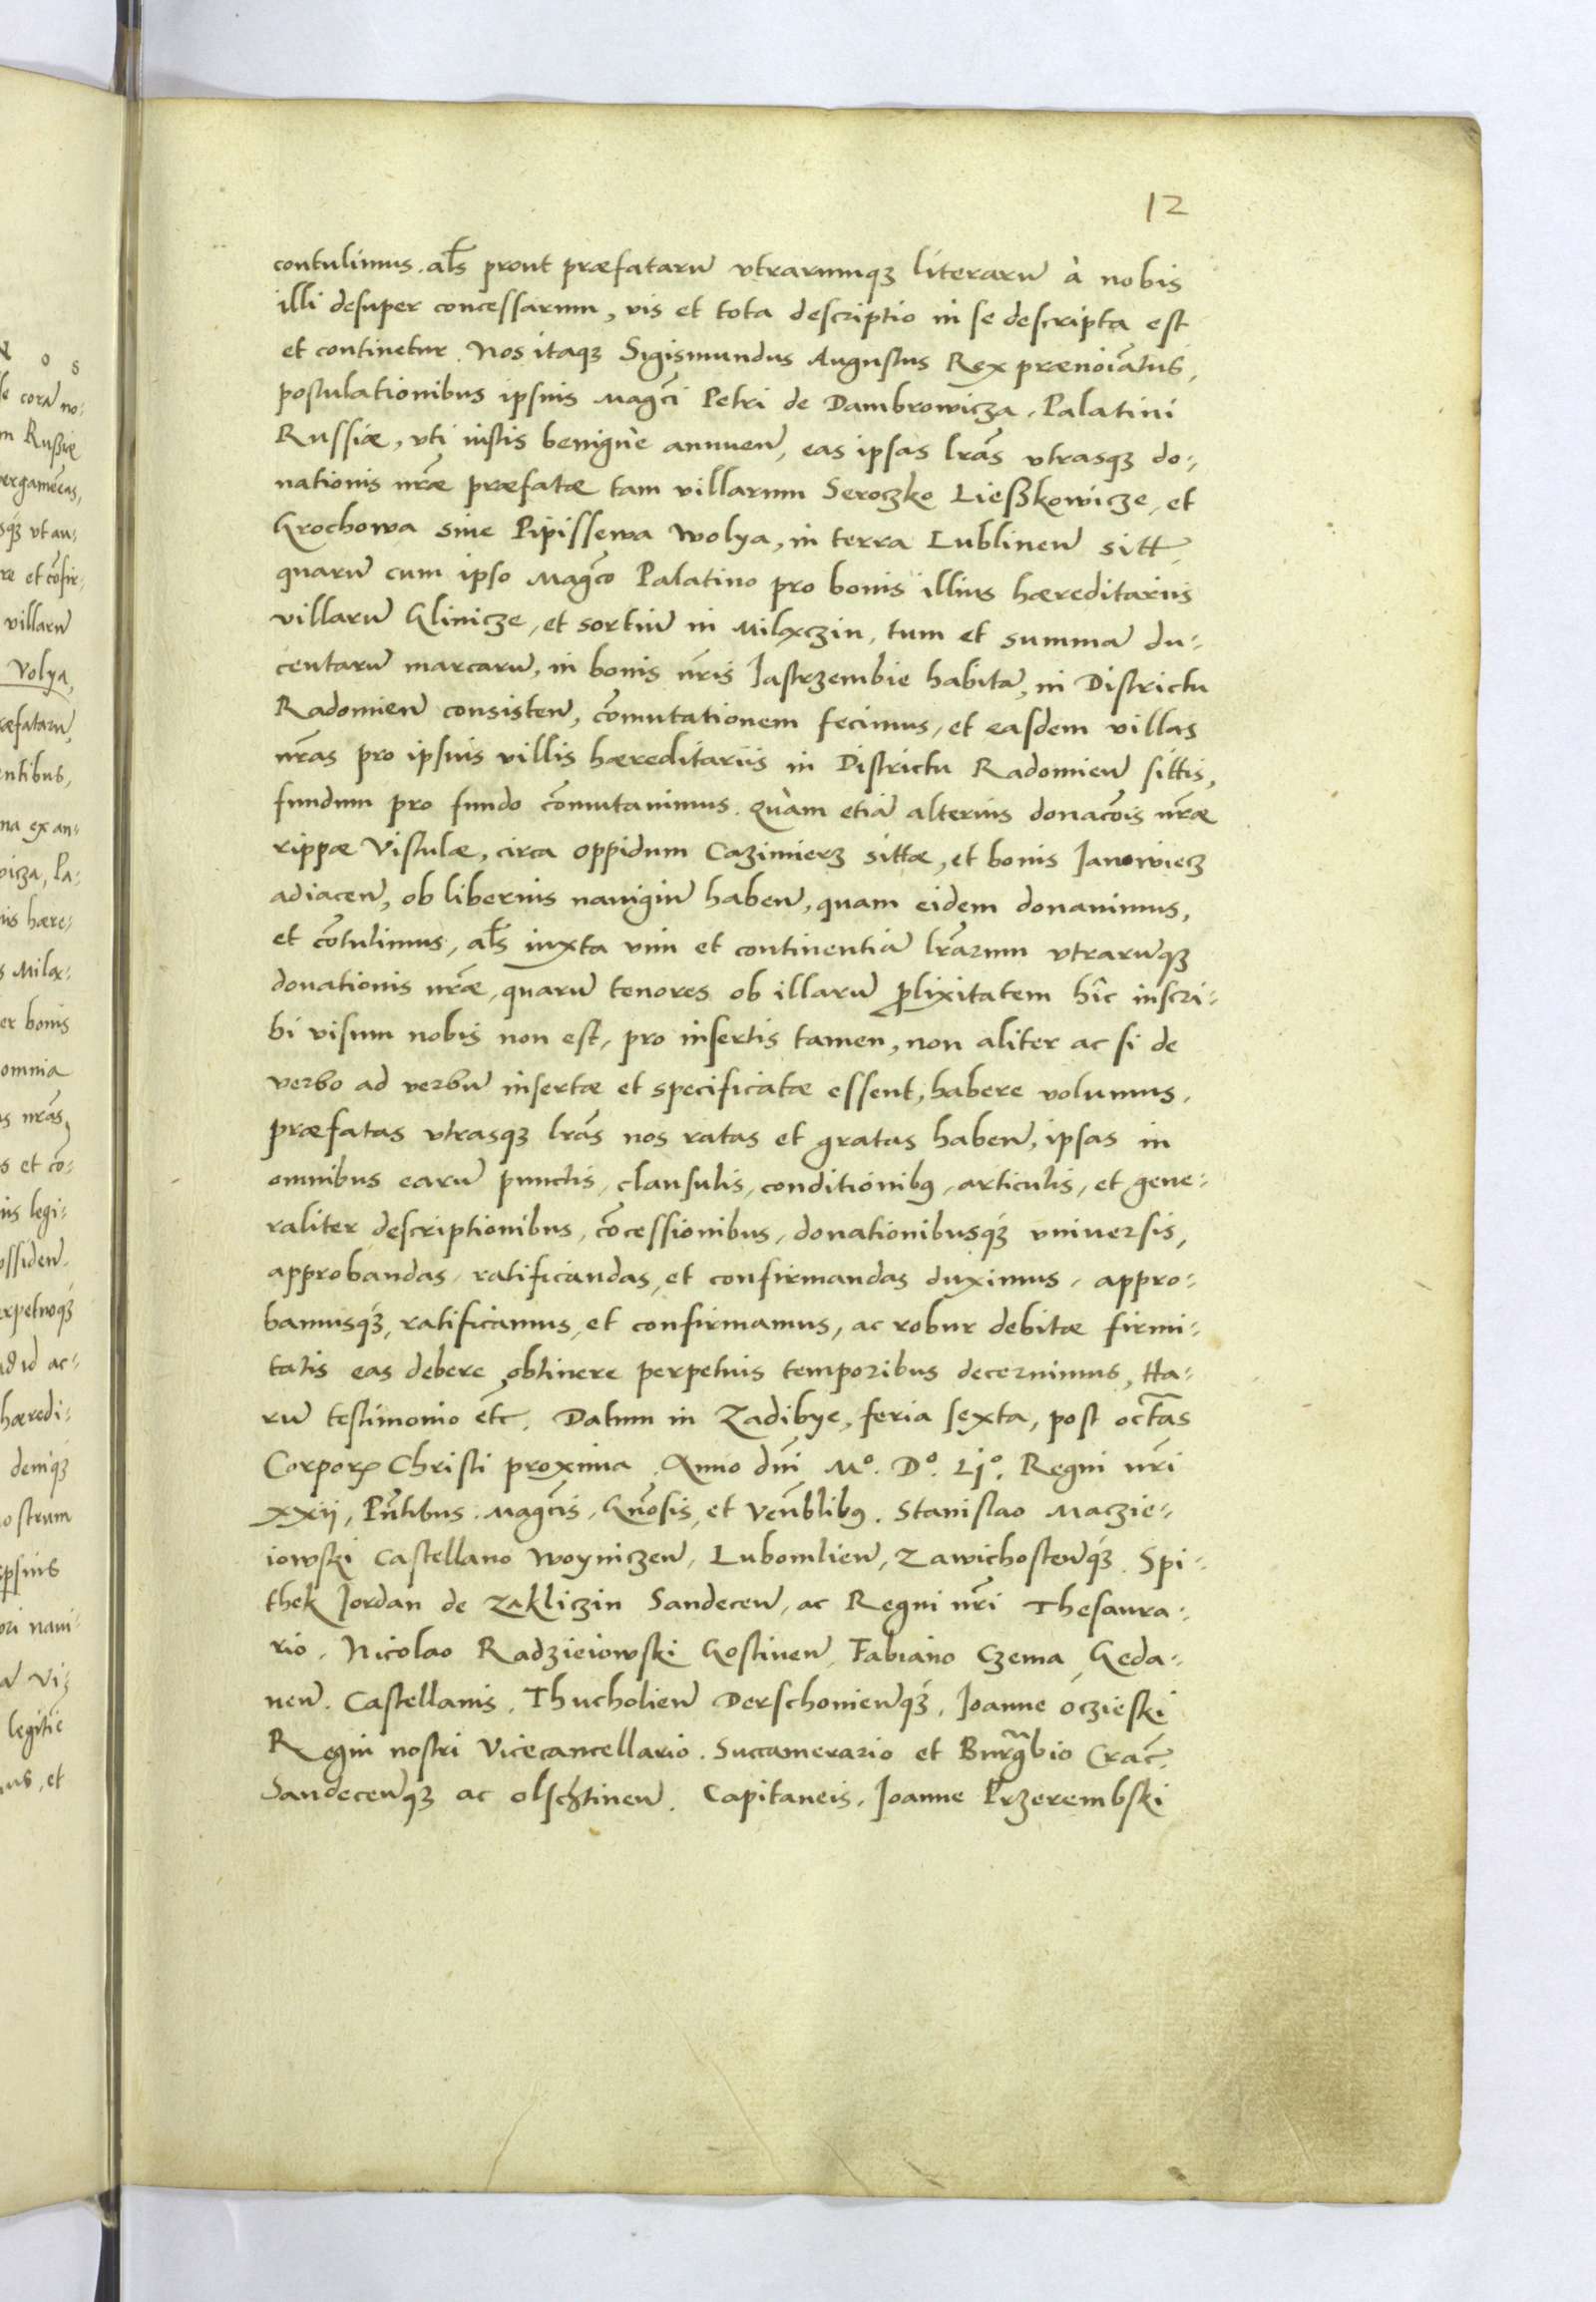 12
contulimus. al̃s prout præfatarũ vtrarumqꝫ literarũ à nobis
illi desuper concessarum, vis et tota descriptio in se descripta est
et continetur. Nos itaqꝫ Sigismundus Augustus Rex prænoĩatus,
postulationibus ipsius Magc̃i Petri de Dambrowicza, Palatini
Russiæ, vti iustis benignè annuen̄, eas ipsas lr̃as vtrasqꝫ do-
nationis nr̃æ præfatæ tam villarum Seroczko Ließkowicze, et
Grochowa siue Pipissewa Wolya, in terra Lublinen̄ sitt.
quarũ cum ipso Magc̃o Palatino pro bonis illius hæreditariis
villarũ Glinicze, et sortiũ in Milęczin, tum et summa du-
centarũ marcarũ, in bonis nr̃is Jastrzembie habita, in Districtu
Radomien̄ consisten̄, c̃omutationem fecimus, et easdem villas
nr̃as pro ipsius villis hæreditariis in Districtu Radomien̄ sittis,
fundum pro fundo c̃omutauimus. Quàm etiã alterius donac̃ois nr̃æ
rippæ Vistulæ, circa oppidum Cazimierz sittæ, et bonis Janowiecz
adiacen̄, ob liberius nauigiũ haben̄, quam eidem donauimus,
et cõtulimus, al̃s iuxta vim et continentiã lr̃arum vtrarũqꝫ
donationis nr̃æ, quarũ tenores ob illarũ ꝓlixitatem hîc inscri-
bi visum nobis non est, pro insertis tamen, non aliter ac si de
verbo ad verbũ insertæ et specificatæ essent, habere volumus.
præfatas vtrasqꝫ lr̃as nos ratas et gratas haben̄, ipsas in
omnibus earũ punctis, clausulis, conditionibꝰ, articulis, et gene-
raliter descriptionibus, cõcessionibus, donationibusqꝫ́ vniuersis,
approbandas, ratificandas, et confirmandas duximus, appro-
bamusqꝫ́, ratificamus, et confirmamus, ac robur debitæ firmi-
tatis eas debere obtinere perpetuis temporibus decernimus, Ha-
rũ testimonio etc̃. Datum in Zadibye, feria sexta, post oct̃as
Corporꝭ Christi proxima. Anno dn̄i Mº. Dº. Ljº. Regni nr̃i
xxij, Pn̄tibus. Magc̃is, Gn̄osis, et Ven̄blibꝰ. Stanislao Maczie-
iowski Castellano Woyniczen̄, Lubomlien̄, Zawichosten̄qꝫ́. Spi-
thek Jordan de Zakliczin Sandecen̄, ac Regni nr̃i Thesaura-
rio. Nicolao Radzieiowski Gostinen̄, Fabiano Czema, Geda-
nen̄. Castellanis. Thucholien̄ Derschonien̄qꝫ́. Joanne Oczieski
Regni nostri Vicecancellario. Succamerario et Burgr̃abio Crac̃.
Sandecen̄qꝫ ac Olschtinen̄. Capitaneis, Joanne Przerembski